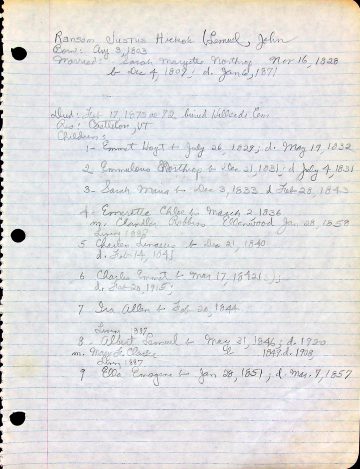 Ransom Justus Hickok (Lemuel, John
Born: Aug 3, 1803
Married: Sarah Maryette Northrop Nov 16, 1828
b Dec 4, 1809; d. Jan 6, 1871
Died: Feb 17, 1875 ae 72 buried Hillside Cem
Res: Castleton, VT
Children:
1- Emmet Hoyt b July 26, 1829; d. May 19, 1832
2 Northrop b Dec 21, 1831; d July 4, 1831
3- Sarah Maria b Dec 3, 1833 d Feb 28, 1843
4- Chloe b March 2, 1836
m. Chandler Robbins Ellenwood Jan 28, 1858
Living 1886
5 Charles b Dec 21, 1840
d. Feb 14,
6 Charles Emmet b Mar 17, 1842
d. Feb 20, 1915
7 Ira Allen b Feb 20, 1844
Living 887
8- Albert Lemuel b May 31, 1846; d. 1920
m. Mary F. Clark b 1849 d. 1908
Living 1887
9 Ella Emogene b Jan 28, 1851; d. Mar. 9, 1857